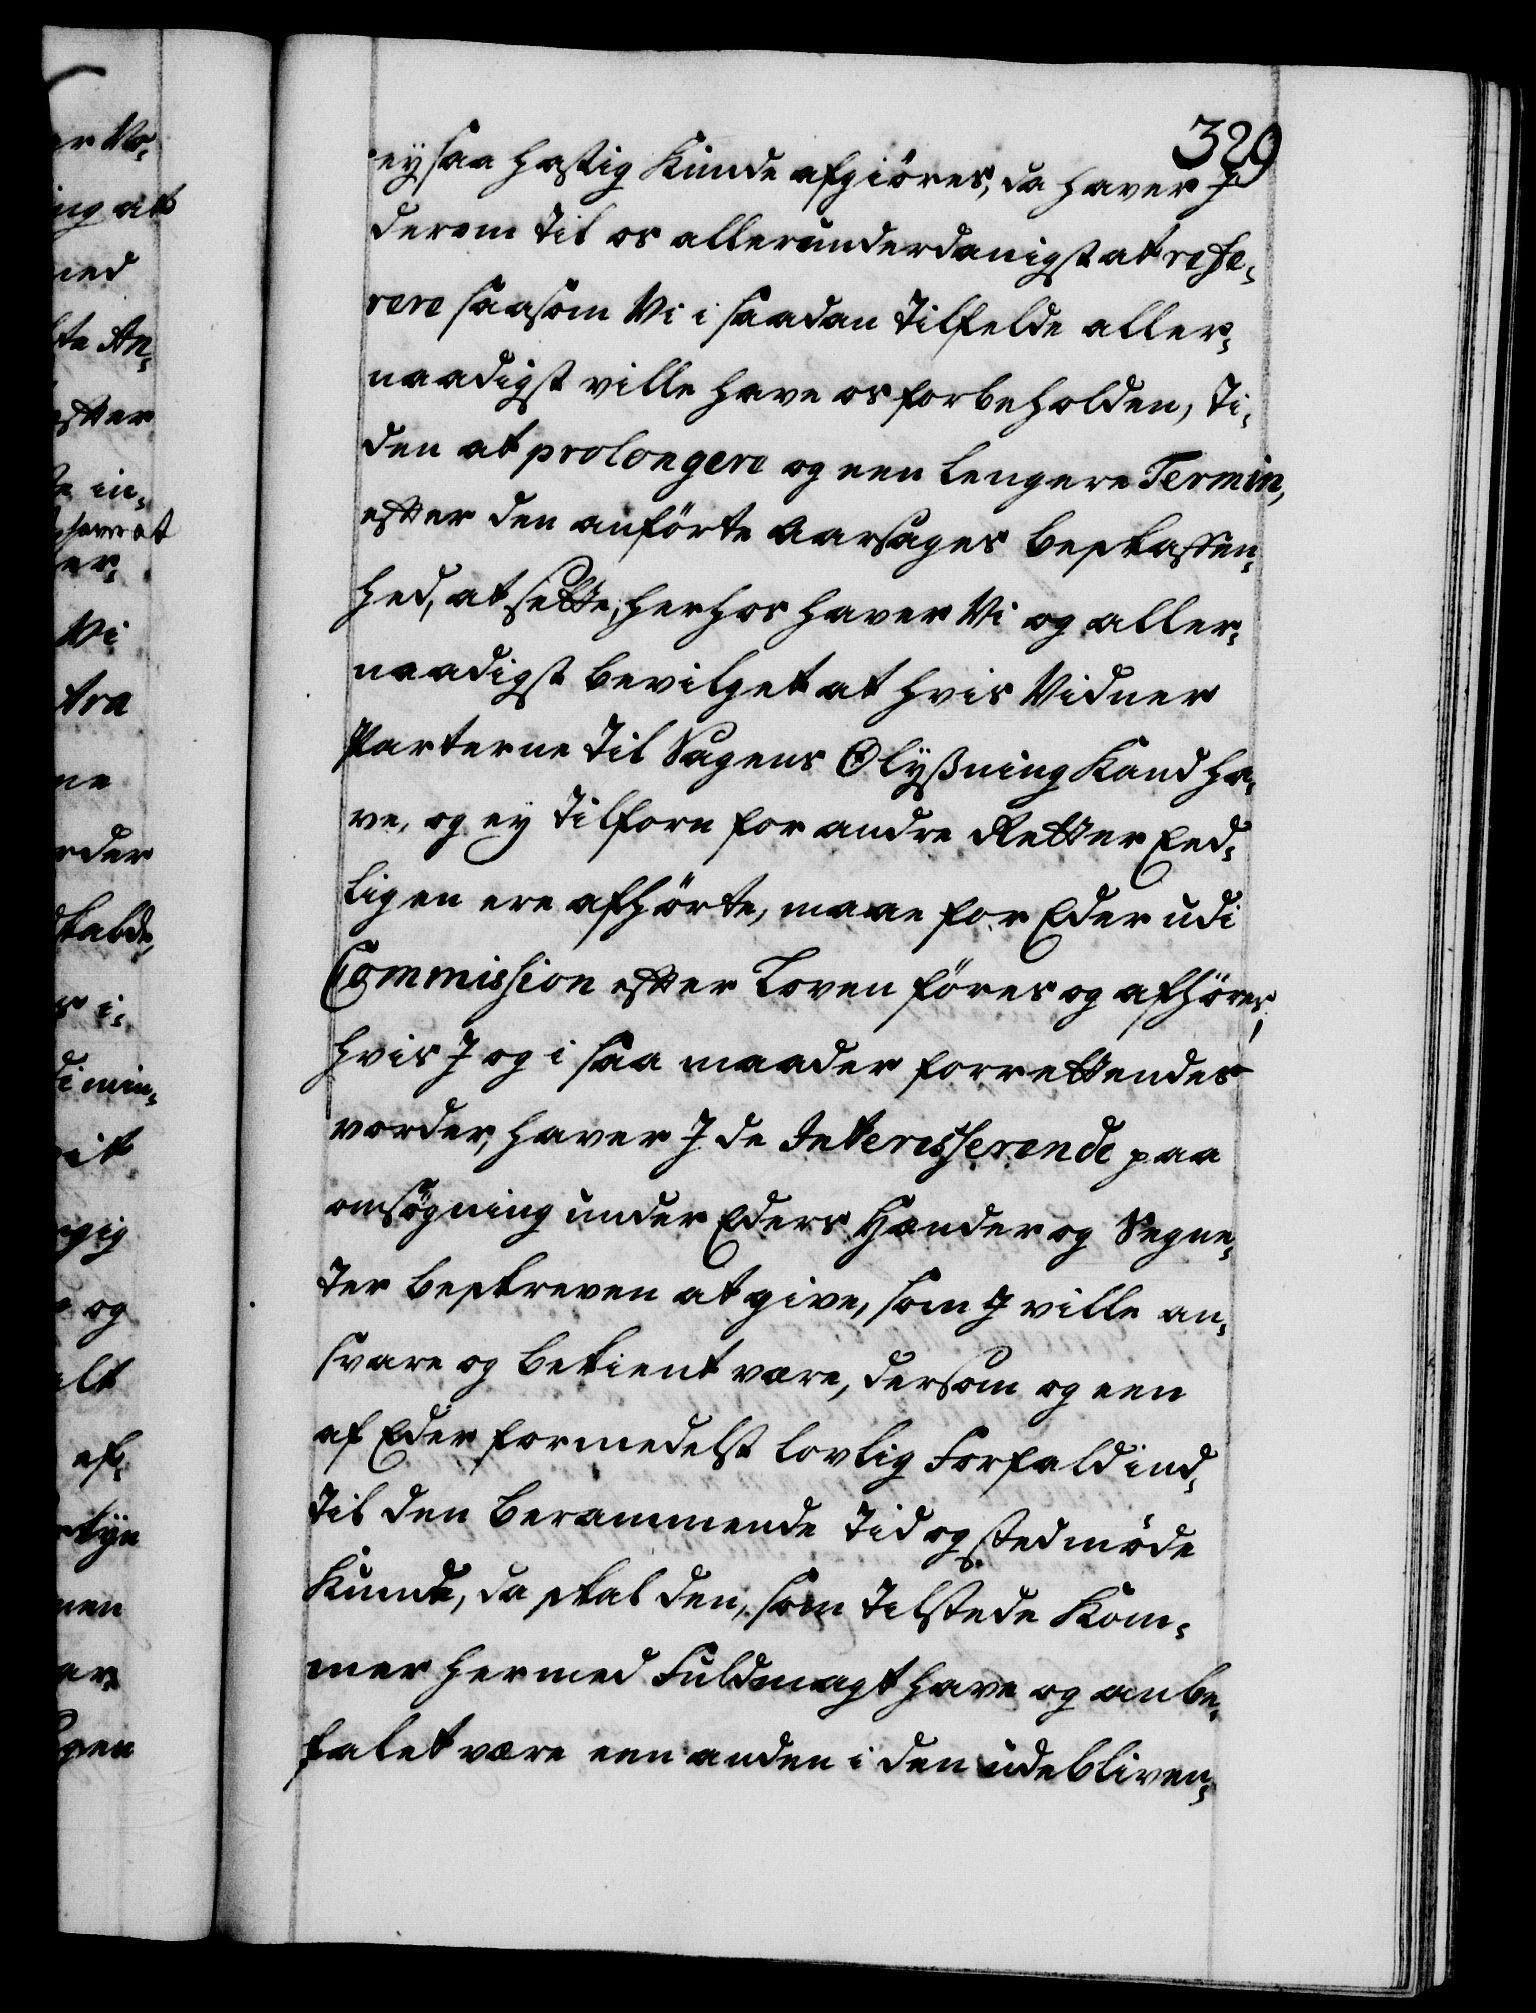 329
ey saa hastig Kunde afgiöres, da haver I
derom til os allerunderdanigst at refe,
rere saasom Vi i saadan Tilfelde aller,
naadigst ville have os forbeholden, Ti,
den at prolongere og een lengere Termin,
efter den anförte Aarsages beskaffen,
hed, at sette, herhos haver Vi og aller,
naadigst bevilget at hvis Vidner
Parterne til Sagens Olysning Kand ha,
ve, og ey tilforn for andre Retter Eed,
ligen ere afhörte, maae for Eder udi
Commission efter Loven föres og afhöres,
hvis I og i saa maader forrettendes
vorder, haver I de Interesserende paa
ansögning under Eders Hænder og Segne,
ter beskreven at give, som I ville an,
svare og bekient være, dersom og een
af Eder formedelst lovlig Forfald ind,
til den berammende Tid og sted möde
Kunde, da skal den, som tilstede Kom,
mer hermed Fuldmagt have og anbe,
falet være een anden i den udebliven,
er Vo,
ing at
med
te An,
efter
in,
haver at
er,
Vi
tra
ne
rder
skabt,
i,
di min,
it
og
alt
ef,
men
gen